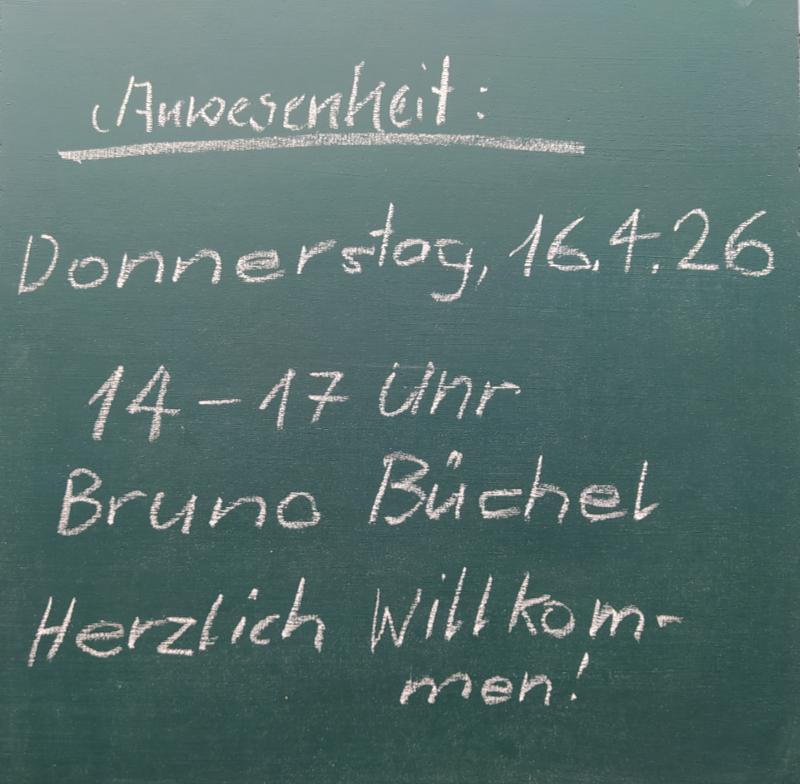 Anwesenheit:
Donnerstag, 16.4.26
14 – 17 Uhr
Bruno Büchel
Herzlich Willkom-
men!